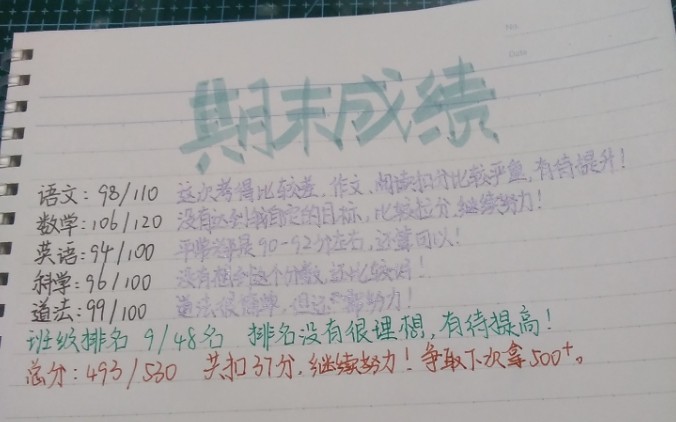 No.
Date
期末成绩
语文：98/110 这次考得比较差，作文、阅读扣分比较严重，有待提升！
数学：106/120 没有达到我自定的目标，比较拉分，继续努力！
英语：94/100 平常是90-92分左右，还算可以！
科学：96/100 没有想到这个分数，还比较好！
道法：99/100 道法很简单，但还努力！
班级排名 9/48名 排名没有很理想，有待提高！
总分：493/530 共扣37分，继续努力！争取下次拿500+。